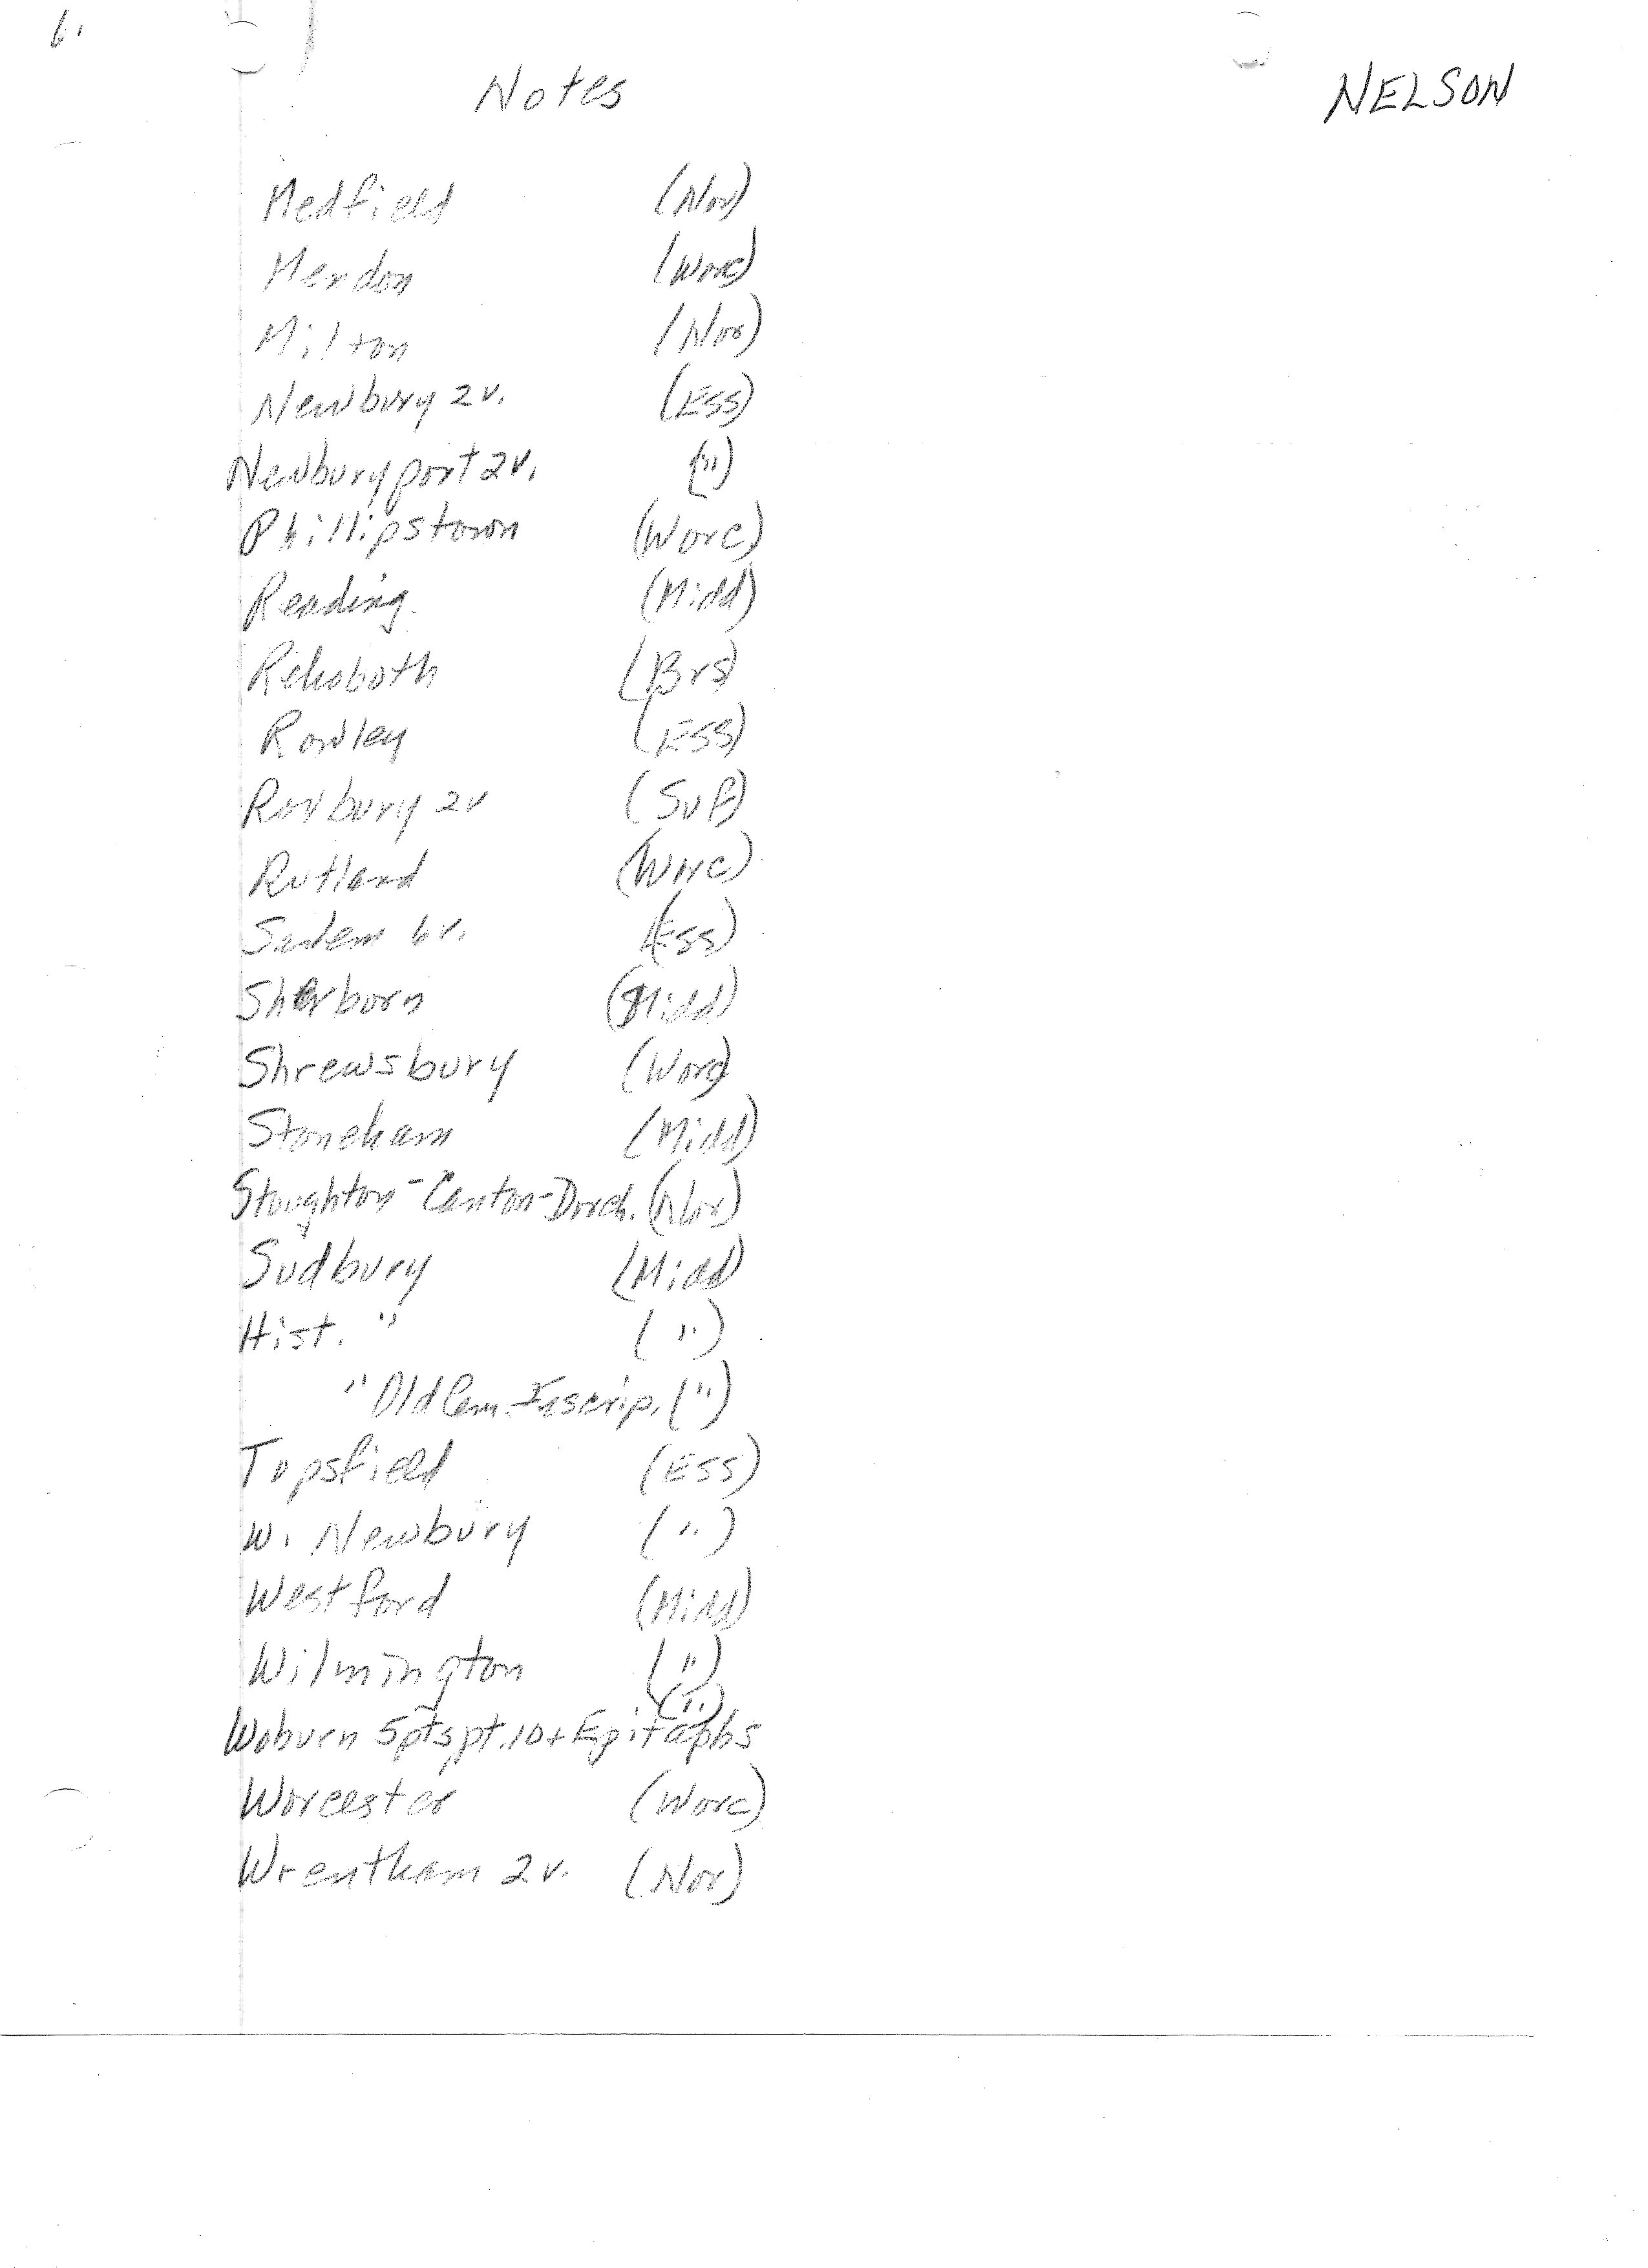 6.
Notes NELSON
Medfield (Nor)
Mendon (Worc)
Milton (Nor)
Newbury 2v. (Ess)
Newburyport 2v. (")
Phillipstown (Worc)
Reading (Midd)
Rehoboth (Brs)
Rowley (Ess)
Roxbury 2v (Suf)
Rutland (Worc)
Salem 6v. (Ess)
Sherborn (Midd)
Shrewsbury (Worc)
Stoneham (Midd)
Stoughton-Canton-Dorch. (Nor)
Sudbury (Midd)
Hist. " (")
" Old Cem. Inscrip. (")
Topsfield (Ess)
W. Newbury (")
Westford (Midd)
Wilmington (")
(")
Woburn 5pts, pt. 10 + Epitaphs
Worcester (Worc)
Wrentham 2v. (Nor)